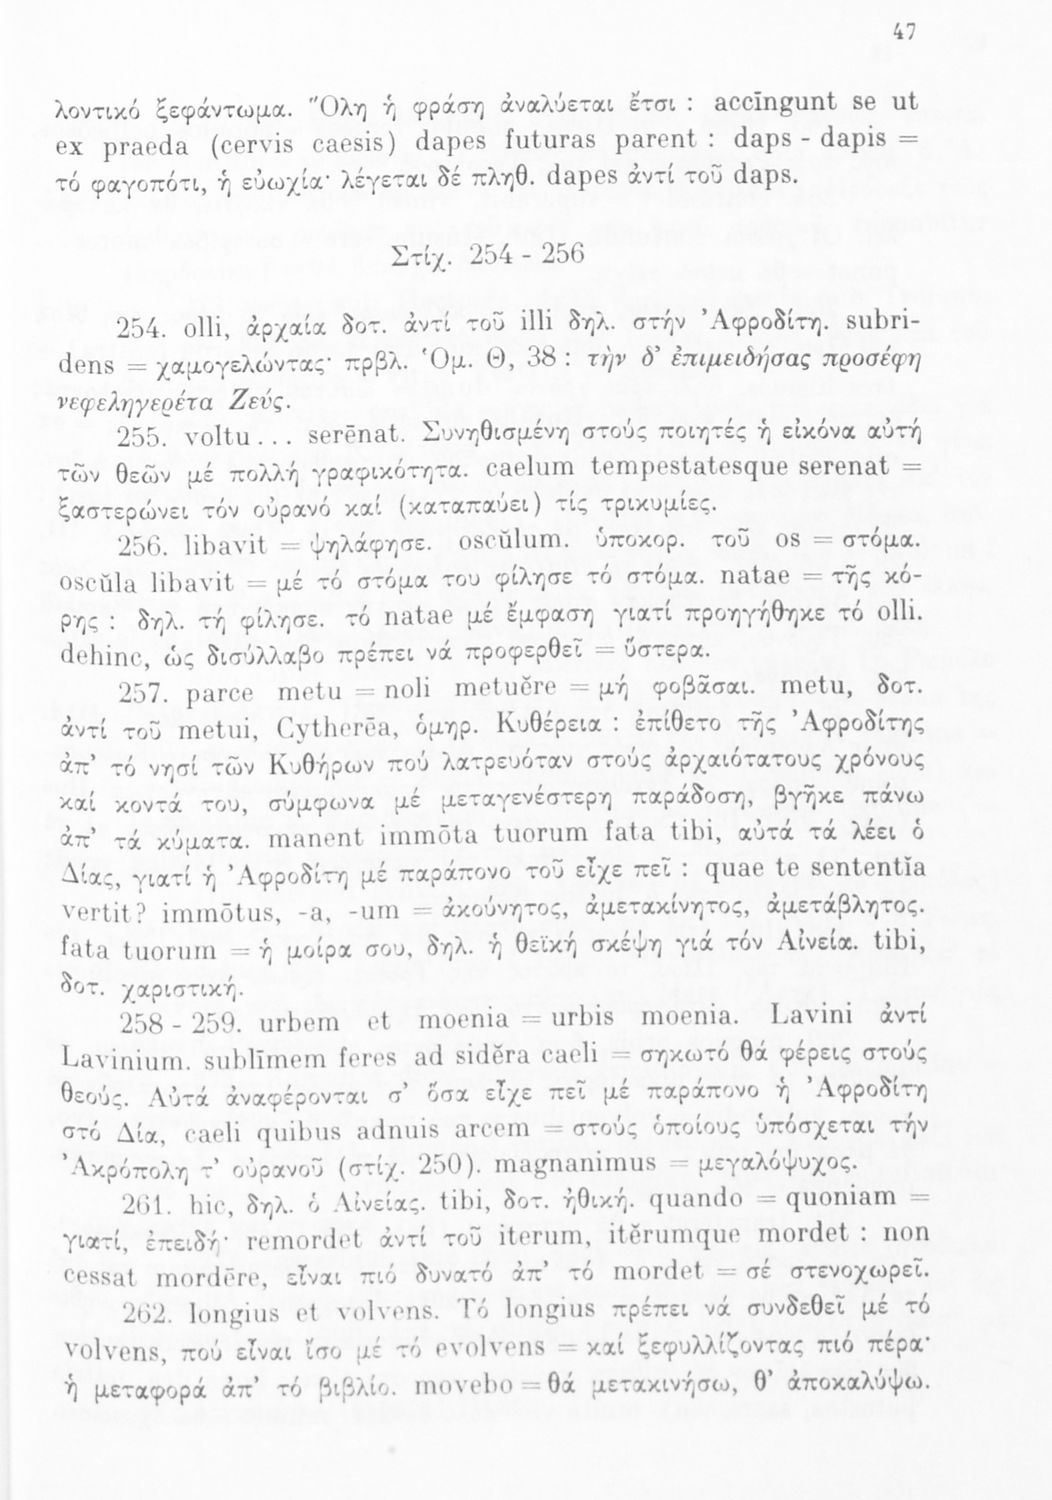 47
λοντικό ξεφάντωμα. Ὅλη ἡ φράση ἀναλύεται ἔτσι : accīngunt se ut
ex praeda (cervis caesis) dapes futuras parent : daps - dapis =
τό φαγοπότι, ἡ εὐωχία· λέγεται δέ πληθ. dapes ἀντί τοῦ daps.
Στίχ. 254 - 256
254. olli, ἀρχαία δοτ. ἀντί τοῦ illi δηλ. στήν Ἀφροδίτη. subri-
dens = χαμογελώντας· πρβλ. Ὁμ. Θ, 38 : τὴν δ’ ἐπιμειδήσας προσέφη
νεφεληγερέτα Ζεύς.
255. voltu... serēnat. Συνηθισμένη στούς ποιητές ἡ εἰκόνα αὐτή
τῶν θεῶν μέ πολλή γραφικότητα. caelum tempestatesque serenat =
ξαστερώνει τόν οὐρανό καί (καταπαύει) τίς τρικυμίες.
256. libavit = ψηλάφησε. oscŭlum. ὑποκορ. τοῦ os = στόμα.
oscŭla libavit = μέ τό στόμα του φίλησε τό στόμα. natae = τῆς κό-
ρης : δηλ. τή φίλησε. τό natae μέ ἔμφαση γιατί προηγήθηκε τό olli.
dehinc, ὡς δισύλλαβο πρέπει νά προφερθεῖ = ὕστερα.
257. parce metu = noli metuĕre = μή φοβᾶσαι. metu, δοτ.
ἀντί τοῦ metui, Cytherēa, ὁμηρ. Κυθέρεια : ἐπίθετο τῆς Ἀφροδίτης
ἀπ’ τό νησί τῶν Κυθήρων πού λατρευόταν στούς ἀρχαιότατους χρόνους
καί κοντά του, σύμφωνα μέ μεταγενέστερη παράδοση, βγῆκε πάνω
ἀπ’ τά κύματα. manent immōta tuorum fata tibi, αὐτά τά λέει ὁ
Δίας, γιατί ἡ Ἀφροδίτη μέ παράπονο τοῦ εἶχε πεῖ : quae te sententĭa
vertit? immōtus, -a, -um = ἀκούνητος, ἀμετακίνητος, ἀμετάβλητος.
fata tuorum = ἡ μοίρα σου, δηλ. ἡ θεϊκή σκέψη γιά τόν Αἰνεία. tibi,
δοτ. χαριστική.
258 - 259. urbem et moenia = urbis moenia. Lavini ἀντί
Lavinium. sublīmem feres ad sidĕra caeli = σηκωτό θά φέρεις στούς
θεούς. Αὐτά ἀναφέρονται σ’ ὅσα εἶχε πεῖ μέ παράπονο ἡ Ἀφροδίτη
στό Δία, caeli quibus adnuis arcem = στούς ὁποίους ὑπόσχεται τήν
Ἀκρόπολη τ’ οὐρανοῦ (στίχ. 250). magnanimus = μεγαλόψυχος.
261. hic, δηλ. ὁ Αἰνείας. tibi, δοτ. ἠθική. quando = quoniam =
γιατί, ἐπειδή· remordet ἀντί τοῦ iterum, itĕrumque mordet : non
cessat mordēre, εἶναι πιό δυνατό ἀπ’ τό mordet = σέ στενοχωρεῖ.
262. longius et volvens. Τό longius πρέπει νά συνδεθεῖ μέ τό
volvens, πού εἶναι ἴσο μέ τό evolvens = καί ξεφυλλίζοντας πιό πέρα·
ἡ μεταφορά ἀπ’ τό βιβλίο. movebo = θά μετακινήσω, θ’ ἀποκαλύψω.